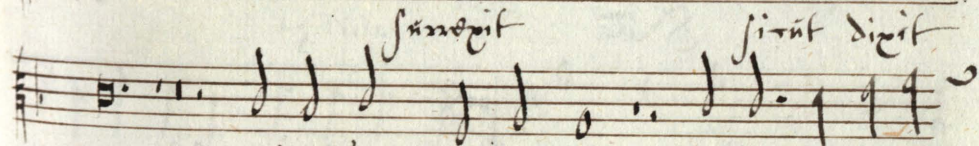 surrexit sicut dixit